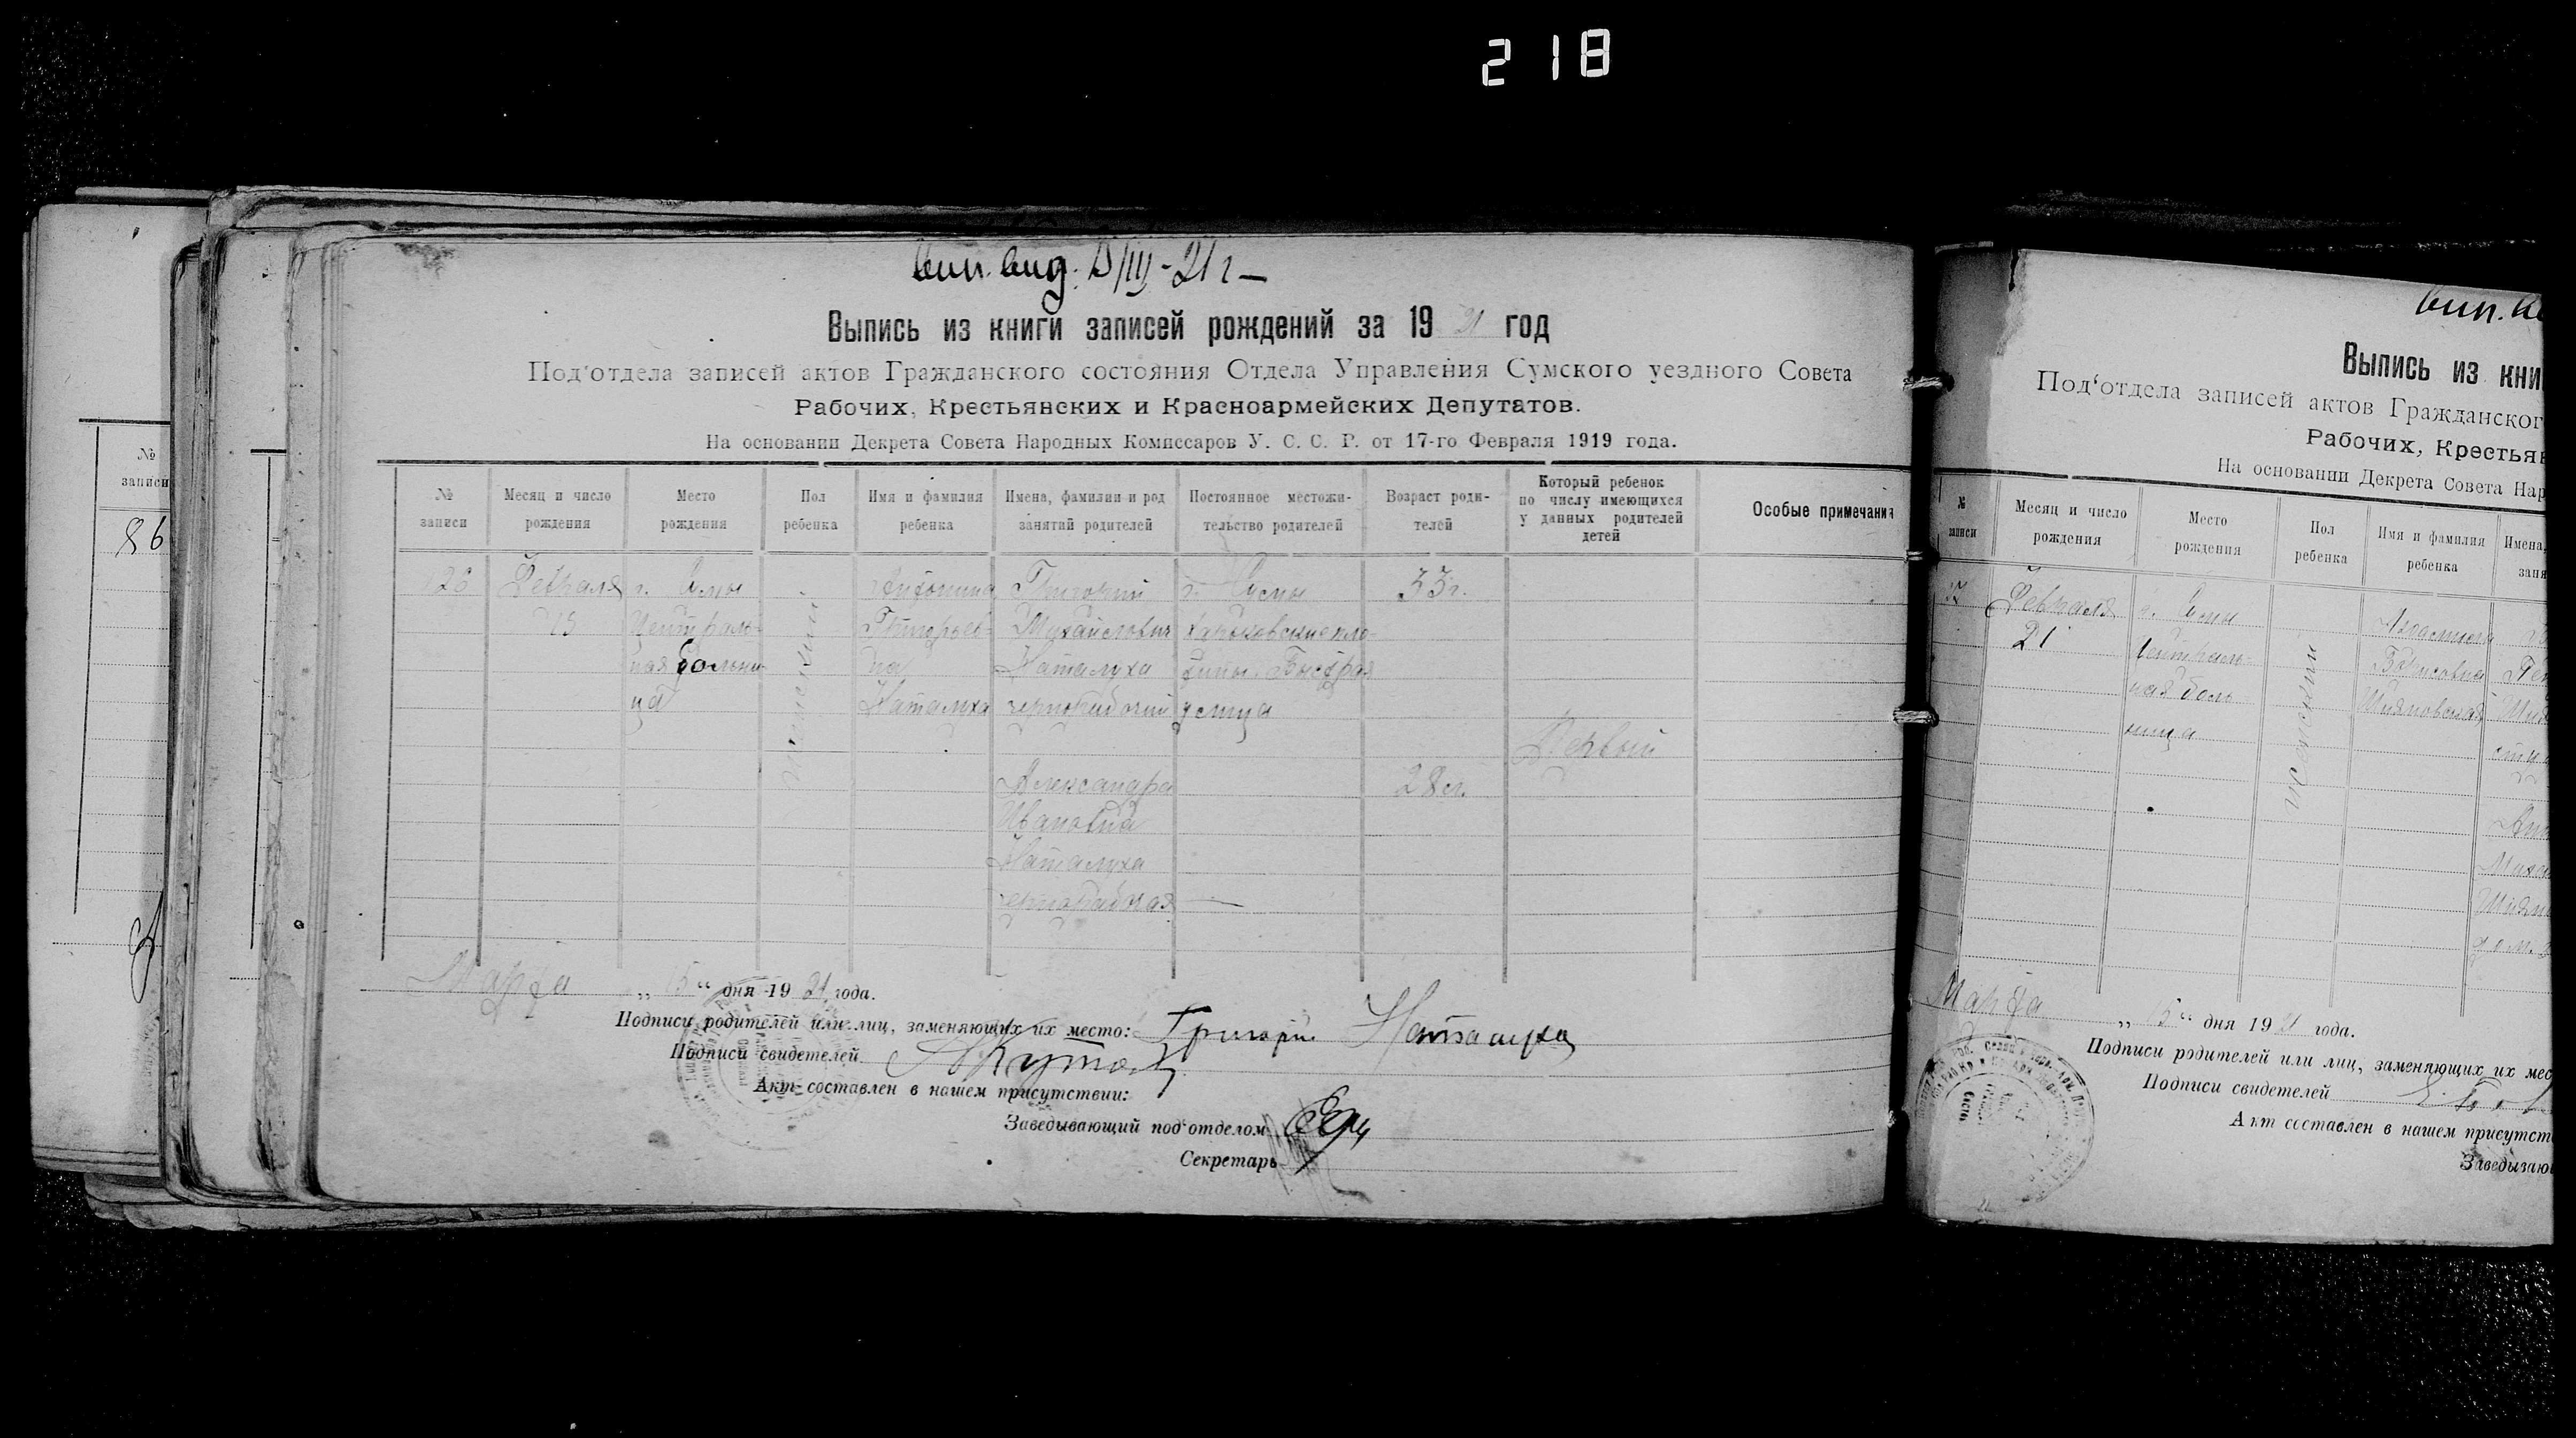 218
вип. вид. 15/III-21 г
Выпись из книги записей рождений за 19 21 год
Под‘отдела записей актов Гражданского состояния Отдела Управления Сумского уездного Совета
Рабочих, Крестьянских и Красноармейских Депутатов.
На основании Декрета Совета Народных Комиссаров У. С. С. Р. от 17-го Февраля 1919 года.
№ записи
Месяц и число рождения
Место рождения
Пол ребенка
Имя и фамилия ребенка
Имена, фамилии и род занятий родителей
Постоянное местожительство родителей
Возраст родителей
Который ребенок по числу имеющихся у данных родителей детей
Особые примечания
126
Февраля
15
г. Сумы
Централь-
ная больни-
ца
женский
Антонина
Григорьев-
на
Наталуха
Григорий
Михайлович
Наталуха
чернорабочий
г. Сумы
Быстрая
улица
33 г.
Первый
Александра
Ивановна
Наталуха
чернорабочая
28 л.
Марта „ 15 “ дня 19 21 года.
Подписи родителей или лиц, заменяющих их место: Григорий Наталуха
Подписи свидетелей
Акт составлен в нашем присутствии:
Заведывающий под‘отделом
Секретарь
№
записи
86
вип.
Выпись из кни
Под‘отдела записей актов Гражданског
Рабочих, Крестьян
На основании Декрета Совета Нар
№ записи
Месяц и число рождения
Место рождения
Пол ребенка
Имя и фамилия ребенка
Имена,
заня
Февраля
21
г. Сумы
Централь-
ная боль
ница
женский
Борисовна
Марта „ 15 “ дня 19 21 года.
Подписи родителей или лиц, заменяющих их мес
Подписи свидетелей
Акт составлен в нашем присутст
Заведываю